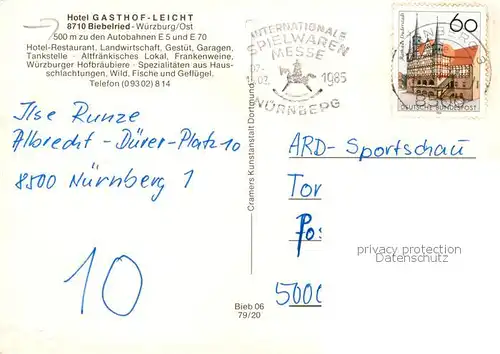 Hotel GASTHOF-LEICHT
8710 Biebelried - Würzburg/Ost
500 m zu den Autobahnen E 5 und E 70
Hotel-Restaurant, Landwirtschaft, Gestüt, Garagen,
Tankstelle - Altfränkisches Lokal, Frankenweine,
Würzburger Hofbräubiere - Spezialitäten aus Haus-
schlachtungen, Wild, Fische und Geflügel.
Telefon (0 93 02) 8 14
INTERNATIONALE
SPIELWAREN
MESSE
1985
NÜRNBERG
60
DEUTSCHE BUNDESPOST
Ilse Runze
Albrecht-Dürer-Platz 10
8500 Nürnberg 1
10
Cramers Kunstanstalt Dortmund
Bieb 06
79/20
ARD-Sportschau
Tor
Pos
5000
privacy protection